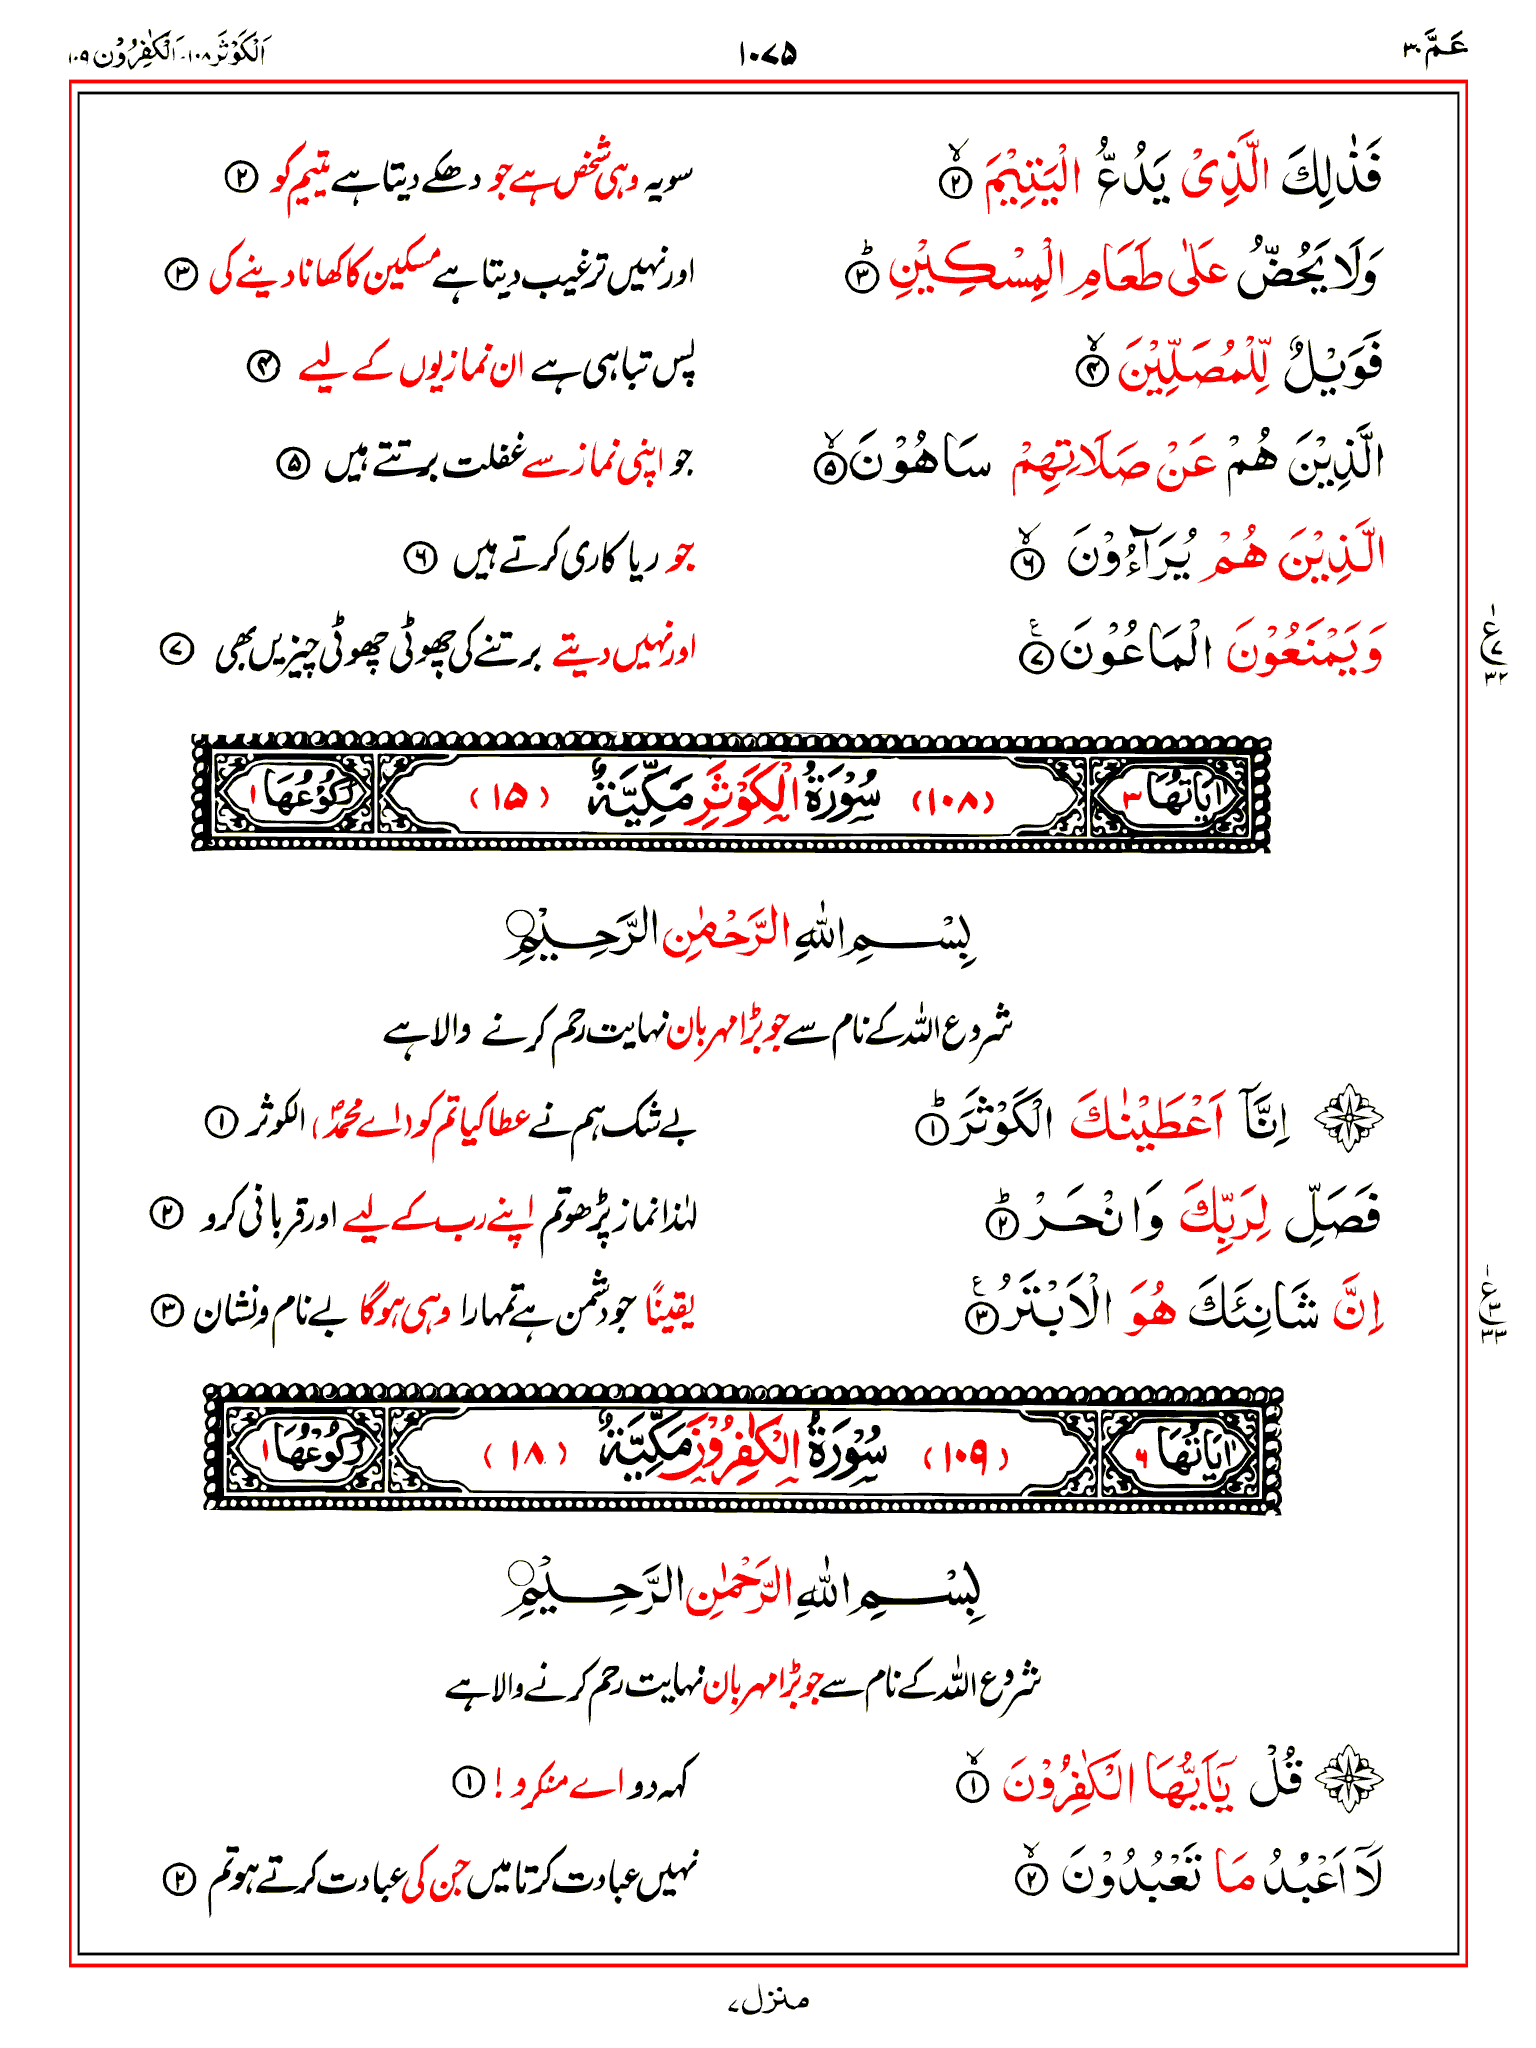 عَمَّ ٣٠ ١٠٧٥ اَلْكَوْثَر ١٠٨ - اَلْكٰفِرُوْن ١٠٩
فَذٰلِكَ الَّذِىْ يَدُعُّ الْيَتِيْمَ ۙ ۲ سو یہ وہی شخص ہے جو دھکے دیتا ہے یتیم کو ۲
وَلَا يَحُضُّ عَلٰى طَعَامِ الْمِسْكِيْنِ ؕ ۳ اور نہیں ترغیب دیتا ہے مسکین کا کھانا دینے کی ۳
فَوَيْلٌ لِّلْمُصَلِّيْنَ ۙ ۴ پس تباہی ہے ان نمازیوں کے لیے ۴
الَّذِيْنَ هُمْ عَنْ صَلَاتِهِمْ سَاهُوْنَ ۙ ۵ جو اپنی نماز سے غفلت برتتے ہیں ۵
الَّذِيْنَ هُمْ يُرَآءُوْنَ ۙ ۶ جو ریا کاری کرتے ہیں ۶
وَيَمْنَعُوْنَ الْمَاعُوْنَ ۧ ۷ اور نہیں دیتے برتنے کی چھوٹی چھوٹی چیزیں بھی ۷
ع ۷ ۳۲
اٰيَاتُهَا ۳ (۱۰۸) سُوْرَةُ الْكَوْثَرِ مَكِّيَّةٌ (۱۵) رُكُوْعُهَا ۱
بِسْمِ اللّٰهِ الرَّحْمٰنِ الرَّحِيْمِ
شروع اللہ کے نام سے جو بڑا مہربان نہایت رحم کرنے والا ہے
اِنَّآ اَعْطَيْنٰكَ الْكَوْثَرَ ؕ ۱ بے شک ہم نے عطا کیا تم کو (اے محمدؐ) الکوثر ۱
فَصَلِّ لِرَبِّكَ وَانْحَرْ ؕ ۲ لہٰذا نماز پڑھو تم اپنے رب کے لیے اور قربانی کرو ۲
اِنَّ شَانِئَكَ هُوَ الْاَبْتَرُ ۧ ۳ یقینًا جو دشمن ہے تمہارا وہی ہوگا بے نام و نشان ۳
ع ۳ ۳۳
اٰيَاتُهَا ۶ (۱۰۹) سُوْرَةُ الْكٰفِرُوْنَ مَكِّيَّةٌ (۱۸) رُكُوْعُهَا ۱
بِسْمِ اللّٰهِ الرَّحْمٰنِ الرَّحِيْمِ
شروع اللہ کے نام سے جو بڑا مہربان نہایت رحم کرنے والا ہے
قُلْ يٰٓاَيُّهَا الْكٰفِرُوْنَ ۙ ۱ کہہ دو اے منکرو! ۱
لَآ اَعْبُدُ مَا تَعْبُدُوْنَ ۙ ۲ نہیں عبادت کرتا میں جن کی عبادت کرتے ہو تم ۲
منزل ۷